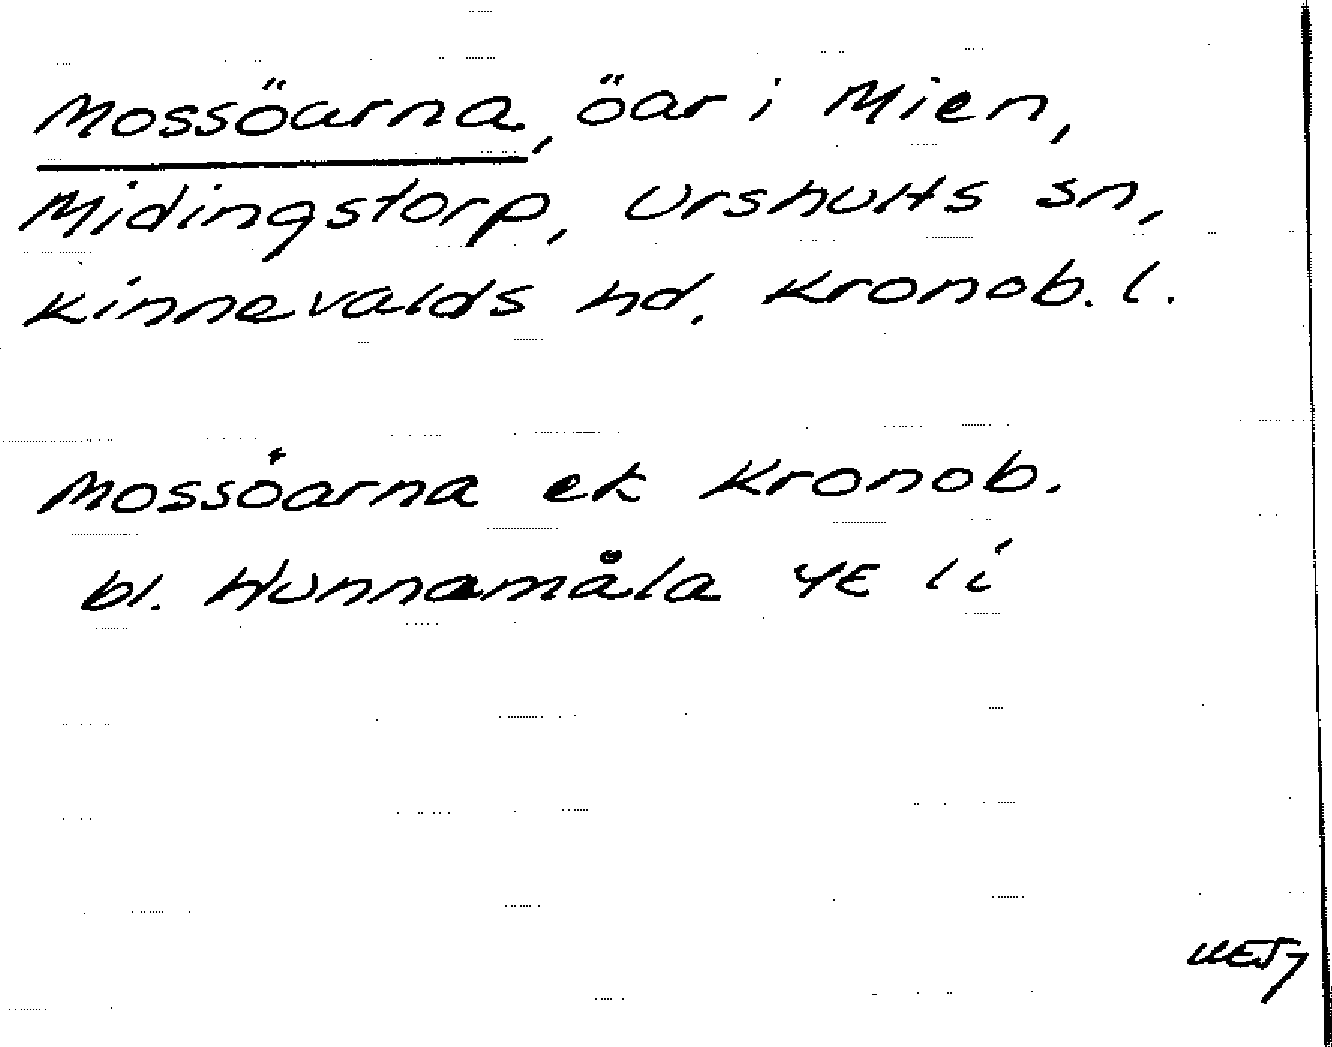 Mossöarna, öar i Mien,
Midingstorp, Urshults sn,
Kinnevalds hd, Kronob. l.
Mossöarna ek Kronob.
bl. Hunnamåla 4E 1 i